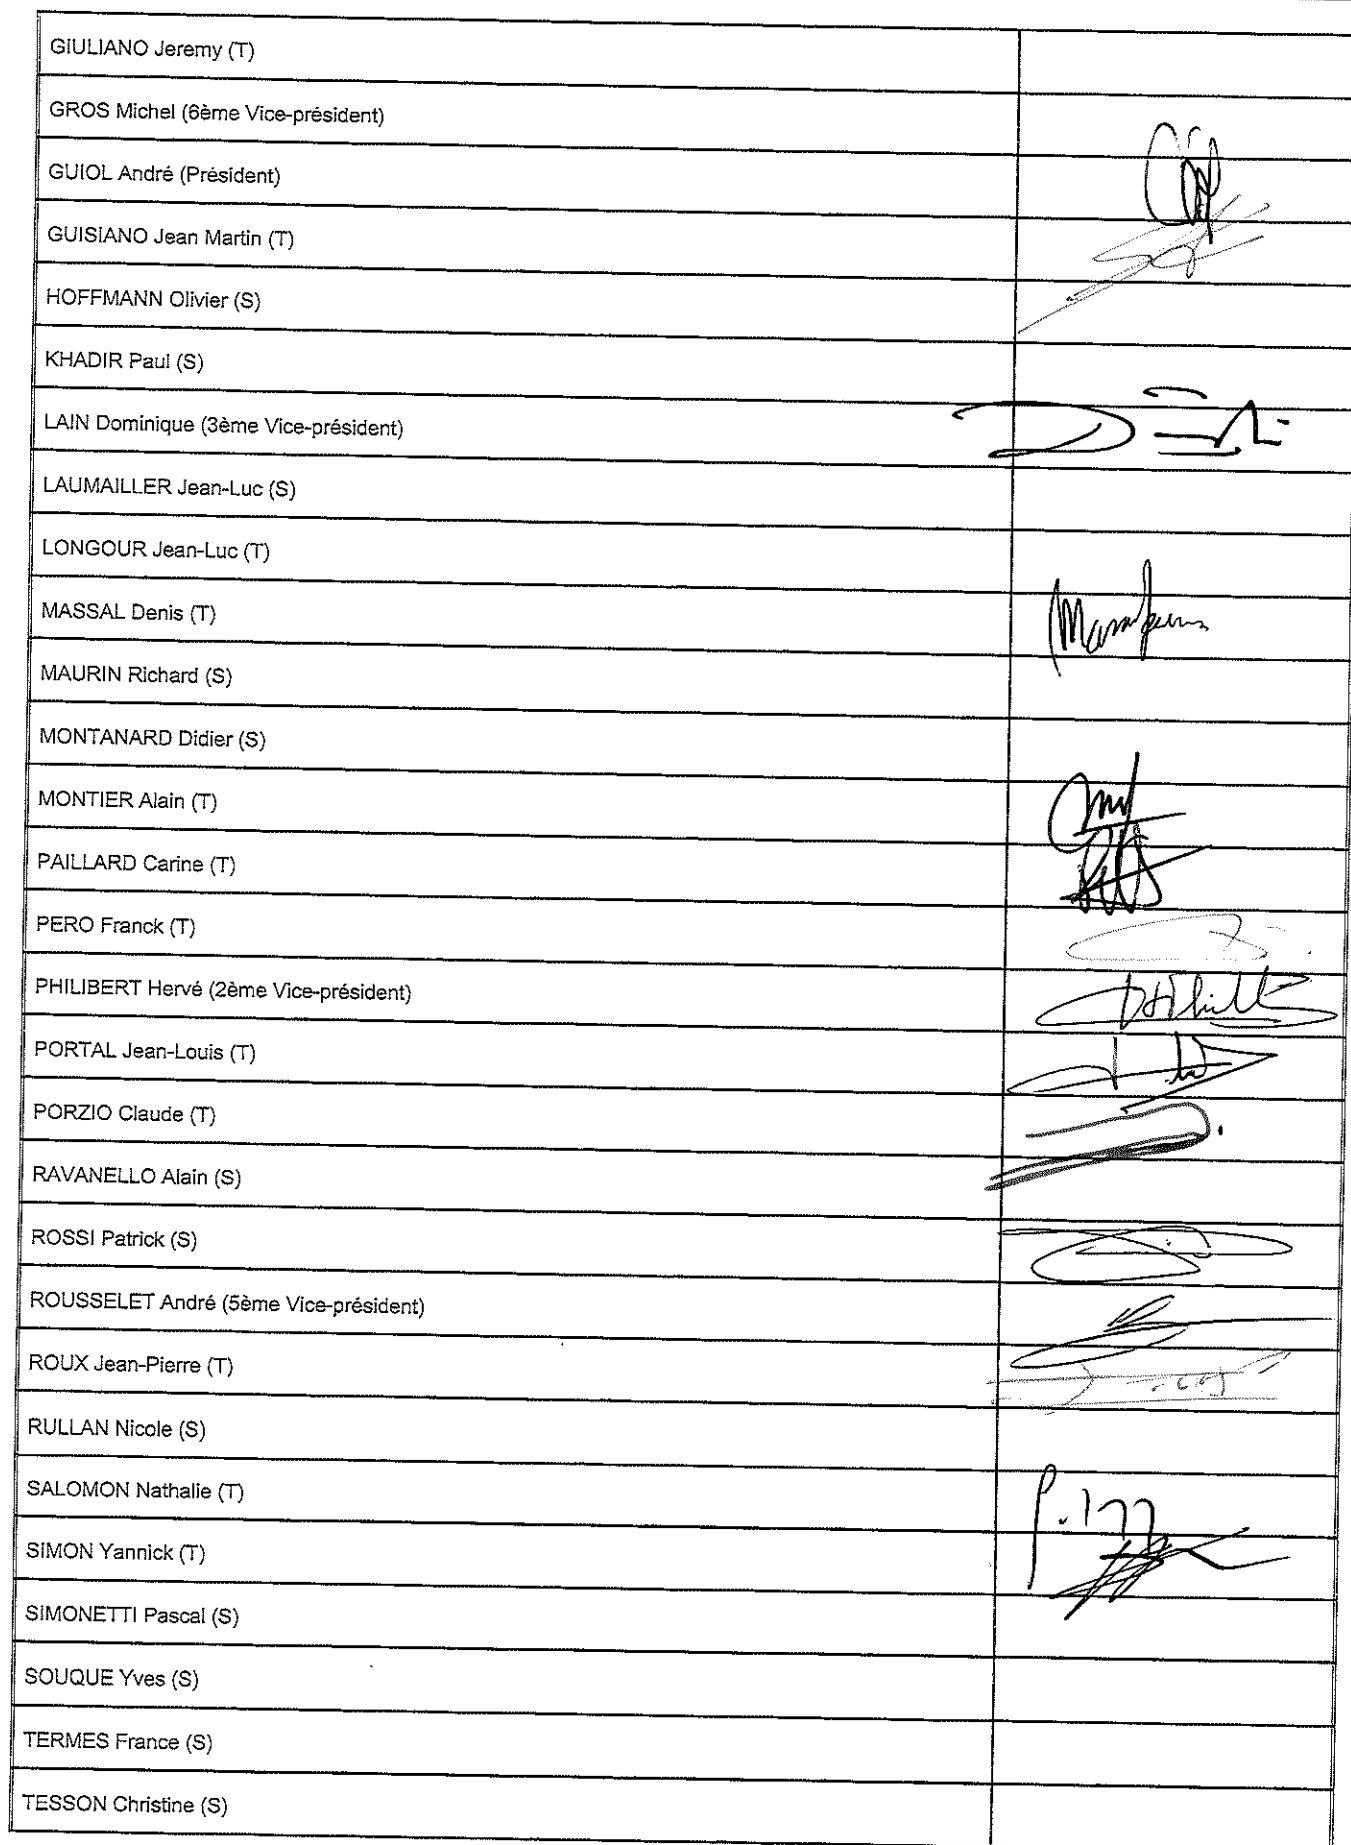 GIULIANO Jeremy (T)
GROS Michel (6ème Vice-président)
GUIOL André (Président)
GUISIANO Jean Martin (T)
HOFFMANN Olivier (S)
KHADIR Paul (S)
LAIN Dominique (3ème Vice-président)
LAUMAILLER Jean-Luc (S)
LONGOUR Jean-Luc (T)
MASSAL Denis (T)
MAURIN Richard (S)
MONTANARD Didier (S)
MONTIER Alain (T)
PAILLARD Carine (T)
PERO Franck (T)
PHILIBERT Hervé (2ème Vice-président)
PORTAL Jean-Louis (T)
PORZIO Claude (T)
RAVANELLO Alain (S)
ROSSI Patrick (S)
ROUSSELET André (5ème Vice-président)
ROUX Jean-Pierre (T)
RULLAN Nicole (S)
SALOMON Nathalie (T)
SIMON Yannick (T)
SIMONETTI Pascal (S)
SOUQUE Yves (S)
TERMES France (S)
TESSON Christine (S)